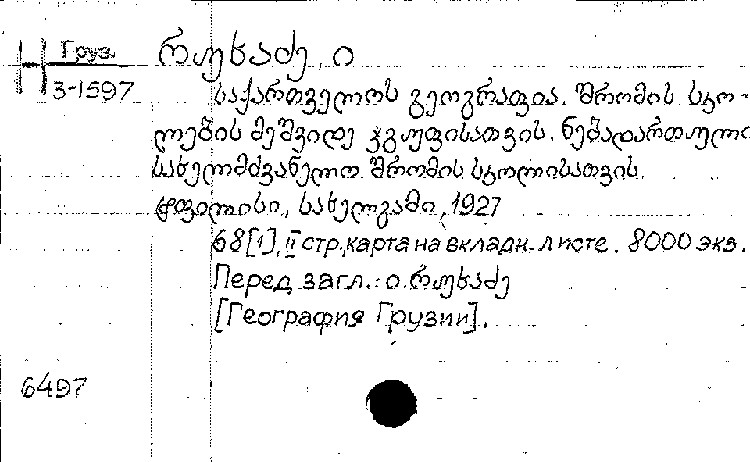 Н Груз. 3-1597
რუხაძე, ი
საქართველოს გეოგრაფია. შრომის სკო-
ლების მეშვიდე ჯგუფისათვის. ნებადართულია
სახელმძვანელო შრომის სკოლისათვის.
ტფილისი, სახელგამი, 1927
68[1], II стр, карта на вкладн. листе. 8000 экз.
Перед загл.: ი. რუხაძე
[География Грузии].
6497